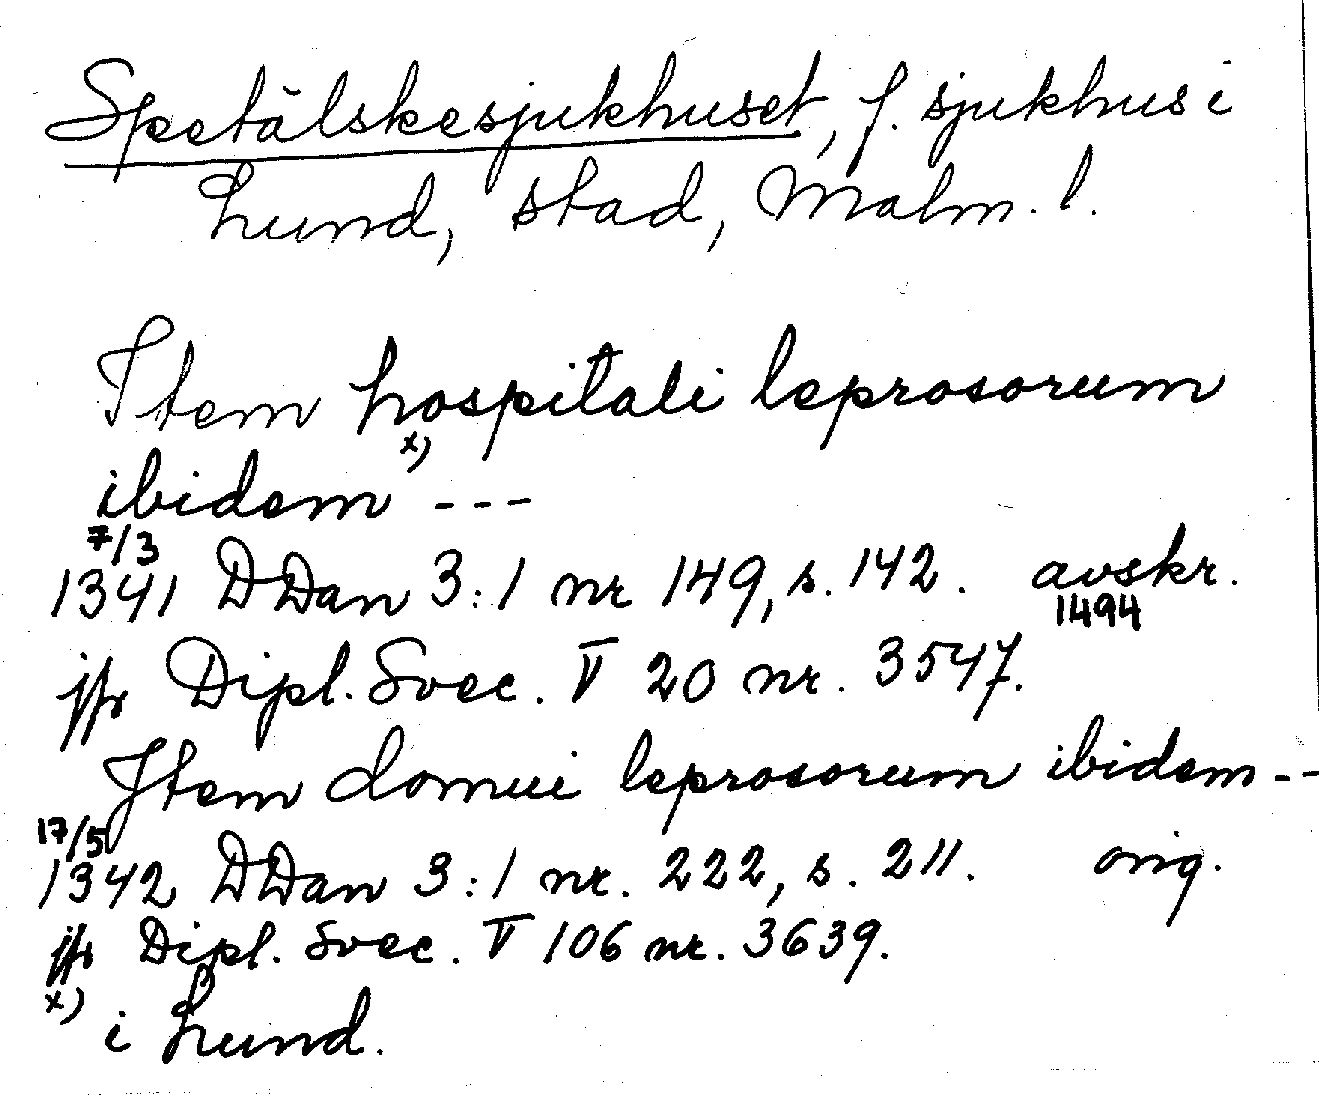 Spetälskesjukhuset, f. sjukhus i
Lund, stad, Malm. l.
Item hospitali leprosorum
ibidem x) ---
7/3
1341 DDan 3:1 nr 149, s. 142. avskr.
1494
jfr Dipl. Svec. V 20 nr. 3547.
Item domui leprosorum ibidem --
17/5
1342 DDan 3:1 nr. 222, s. 211. orig.
jfr Dipl. Svec. V 106 nr. 3639.
x) i Lund.